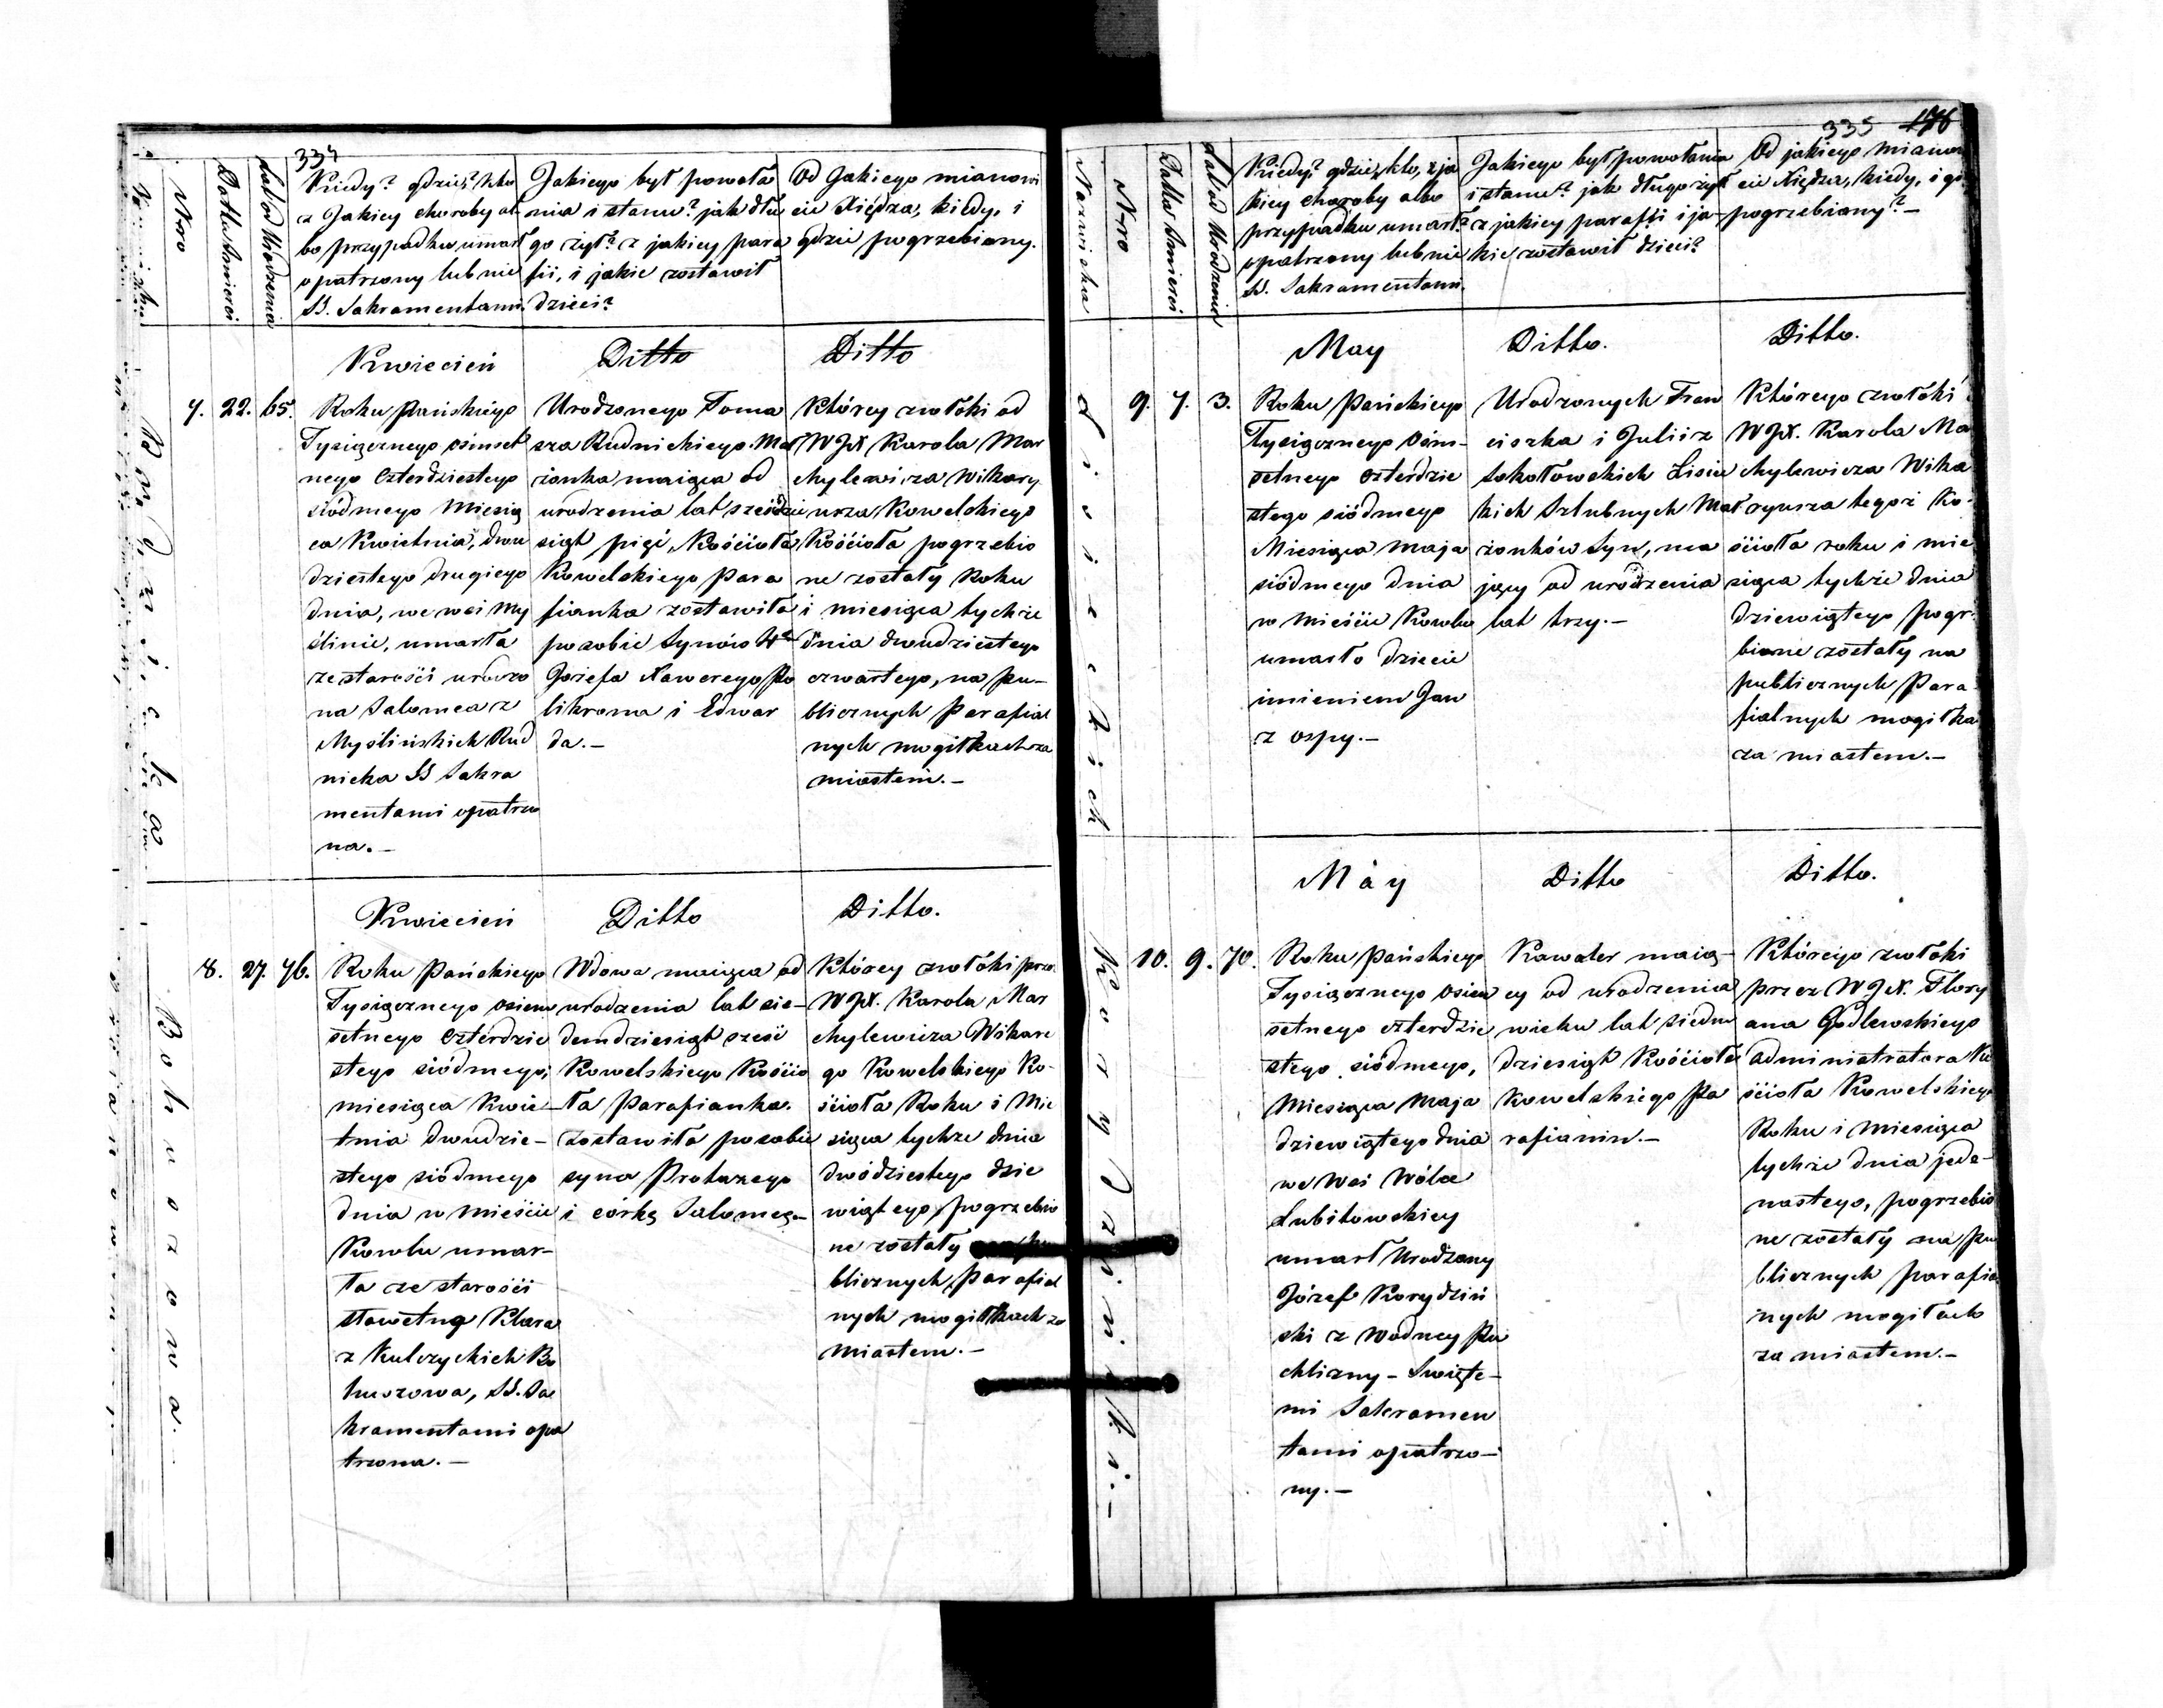 334
Nro
Datta Śmierci
Lat od Urodzenia
Kiedy? gdzie? kto
z Jakiey choroby al
bo przypadku umarł
opatrzony lub nie
SS. Sakramentami.
Jakiego był powoła
nia i stanu? jak dłu
go żył? z jakiey para
fii, i jakie zostawił
dzieci?
Od Jakiego mianowi
cie Xiędza, kiedy, i
gdzie pogrzebiony.
Rudnicka
7. 22. 65.
Kwiecień
Roku Pańskiego
Tysiącznego ośmset
nego Czterdziestego
siódmego Miesią
ca Kwietnia, dwu
dziestego drugiego
dnia, we wsi My
ślinie, umarła
ze starości urodzo
na Salomea z
Myślińskich Rud
nicka SS Sakra
mentami opatrzo
na.—
Ditto
Urodzonego Toma
sza Rudnickiego Mał
żonka maiąca od
urodzenia lat sześdzie
siąt pięć, Kościoła
Kowelskiego Para
fianka zostawiła
po sobie Synów
Józefa Xawerego Po
likroma i Edwar
da.—
Ditto
Którey zwłoki od
WJX Karola Mar
chylewicza Wikary
urza Kowelskiego
Kościoła pogrzebio
ne zostały Roku
i miesiąca tychże
dnia dwudziestego
czwartego, na pu-
blicznych Parafial
nych mogiłkach za
miastem.—
Bohuszowa.
8. 27. 76.
Kwiecień
Roku Pańskiego
Tysiącznego osiem
setnego Czterdzie
stego siódmego,
miesiąca Kwie-
tnia dwudzie-
stego siódmego
dnia w mieście
Kowlu umar-
ła ze starości
sławetna Klara
z Kulczyckich Bo
huszowa, SS. Sa
kramentami opa
trzona.—
Ditto
Wdowa maiąca od
urodzenia lat sie-
demdziesiąt sześć
Kowelskiego Kościo
ła Parafianka.
zostawiła po sobie
syna Protazego
i córkę Salomeę.—
Ditto.
Którey zwłoki przez
WJX. Karola Mar
chylewicza Wikare
go Kowelskiego Ko-
ścioła Roku i Mie
siąca tychże dnia
dwódziestego dzie
wiątego, pogrzebio
ne zostały
blicznych Parafial
nych mogiłkach za
miastem.—
335 176
Nazwiska
Nro
Datta Śmierci
Lat od Urodzenia
Kiedy? gdzie, kto, z ja
kiey choroby albo
przypadku umarł?
opatrzony lub nie
SS. Sakramentami.
Jakiego był powołania
i stanu? jak długo żył
z jakiey parafii i ja-
kie zostawił dzieci?
Od jakiego mianowi
cie Xiędza, kiedy, i
pogrzebiony?—
Lisiecki
9. 7. 3.
May
Roku Pańskiego
Tysiącznego Óśm-
setnego czterdzie
stego siódmego
Miesiąca maja
siódmego dnia
w mieście Kowlu
umarło dziecie
imieniem Jan
z ospy.—
Ditto.
Urodzonych Fran
ciszka i Julii z
Sokołowskich Lisie
kich Szlubnych Mał
żonków Syn, ma
jący od urodzenia
lat trzy.—
Ditto.
Którego zwłoki
WJX. Karola Ma
chylewicza Wika
ryusza tegoż Ko-
ścioła roku i mie
siąca tychże dnia
dziewiątego pogr
bione zostały na
publicznych Para-
fialnych mogiłka
za miastem.—
Korydziński.—
10. 9. 70.
May
Roku Pańskiego
Tysiącznego osiem
setnego czterdzie
stego siódmego,
Miesiąca Maja
dziewiątego dnia
we Wsi Wólce
Lubitowskiey
umarł Urodzony
Józef Korydziń
ski z Wodney Pu
chlizny - Święte-
mi Sakramen
tami opatrzo-
ny.—
Ditto
Kawaler maią-
cy od urodzenia
wieku lat siedm
dziesiąt Kościoła
Kowelskiego Pa
rafianin.—
Ditto.
Którego zwłoki
przez WJX. Flory
ana Godlewskiego
Administratora Ko
ścioła Kowelskiego
Roku i Miesiąca
tychże dnia jede-
nastego, pogrzebio
ne zostały na Pu
blicznych parafia
nych mogiłach
za miastem.—